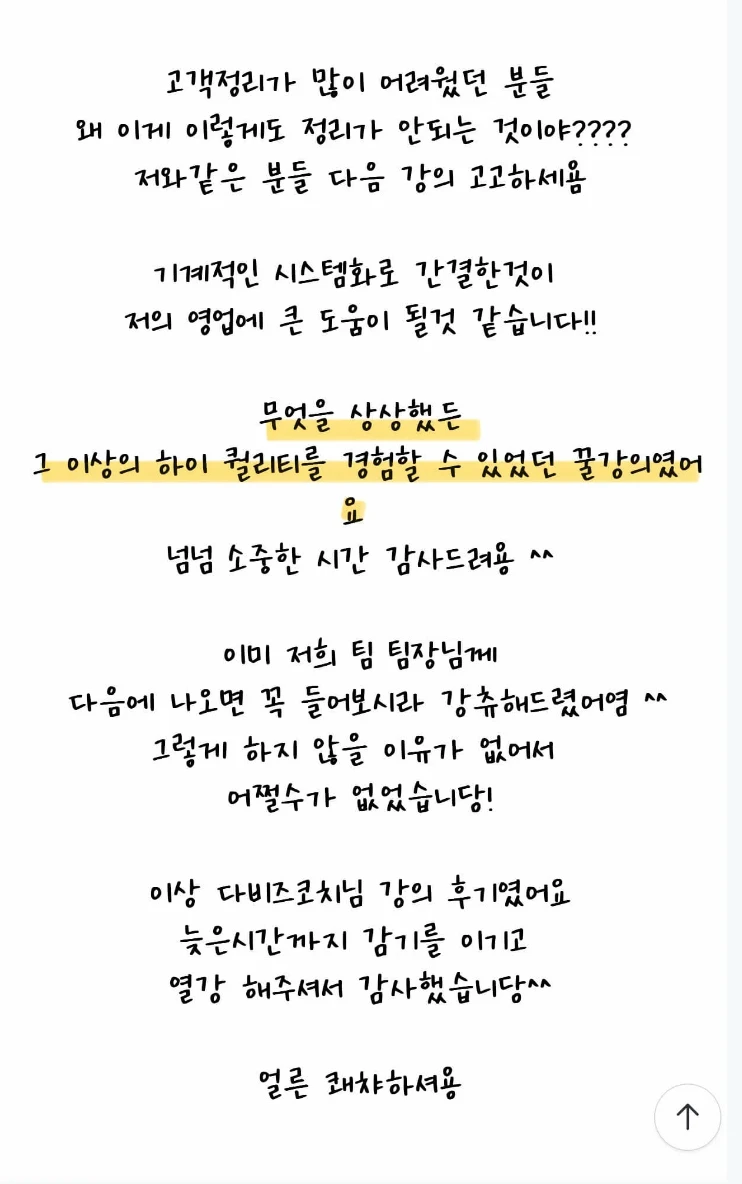 고객정리가 많이 어려웠던 분들
왜 이게 이렇게도 정리가 안되는 것이야????
저와같은 분들 다음 강의 고고하세욤
기계적인 시스템화로 간결한것이
저의 영업에 큰 도움이 될것 같습니다!!
무엇을 상상했든
그 이상의 하이 퀄리티를 경험할 수 있었던 꿀강의였어
요
넘넘 소중한 시간 감사드려용 ^^
이미 저희 팀 팀장님께
다음에 나오면 꼭 들어보시라 강츄해드렸어염 ^^
그렇게 하지 않을 이유가 없어서
어쩔수가 없었습니당!
이상 다비즈코치님 강의 후기였어요
늦은시간까지 감기를 이기고
열강 해주셔서 감사했습니당^^
얼른 쾌차하셔용